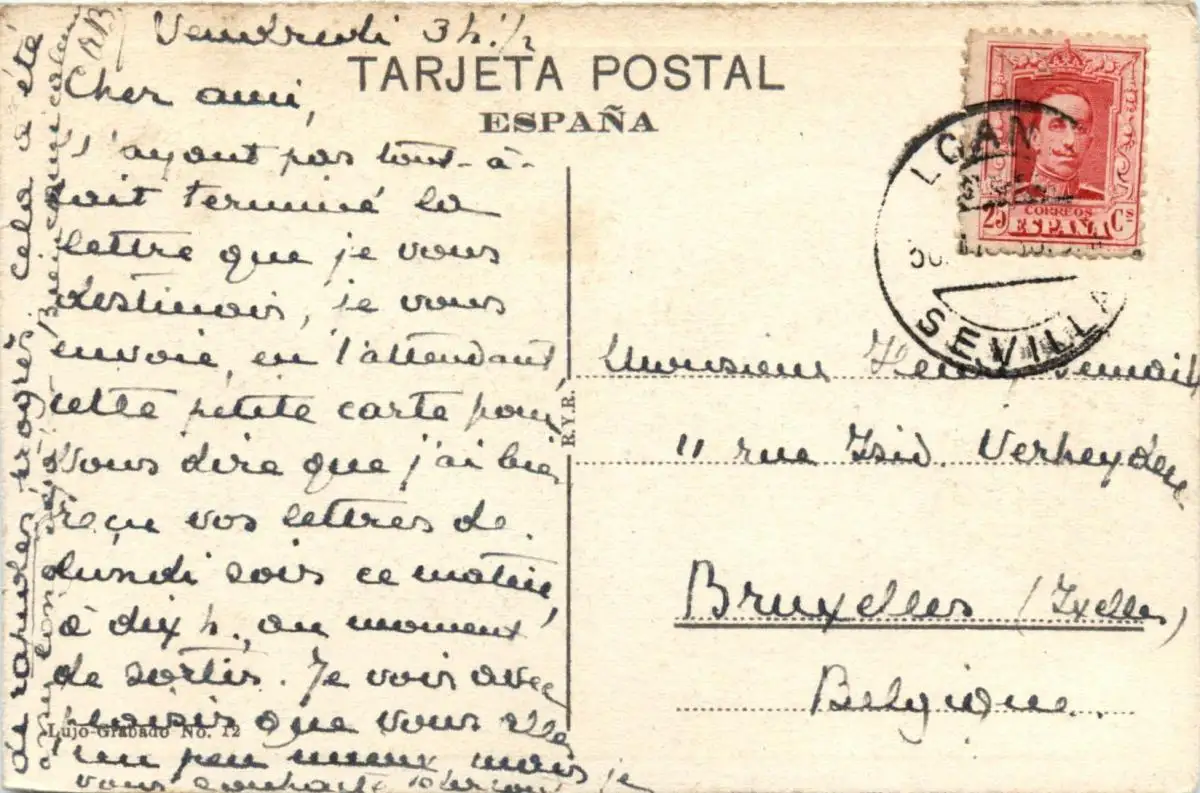 Vendredi 3 h. 1/2
TARJETA POSTAL
ESPAÑA
Cher ami,
N'ayant pas tout-à-
fait terminé la
lettre que je vous
destinais, je vous
envoie, en l'attendant
cette petite carte pour
vous dire que j'ai bien
reçu vos lettres de
lundi soir ce matin,
à dix h., au moment
de sortir. Je vois avec
plaisir que vous allez
un peu mieux mais je
vous souhaite
de rapides progrès. Cela a été
Bien amicalement
R.Y.R.
Lujo-Grabado No. 12
CORREOS
25 ESPAÑA Cs
SEVILLA
Monsieur
11 rue Isid. Verheyden
Bruxelles (Ixelles)
Belgique.